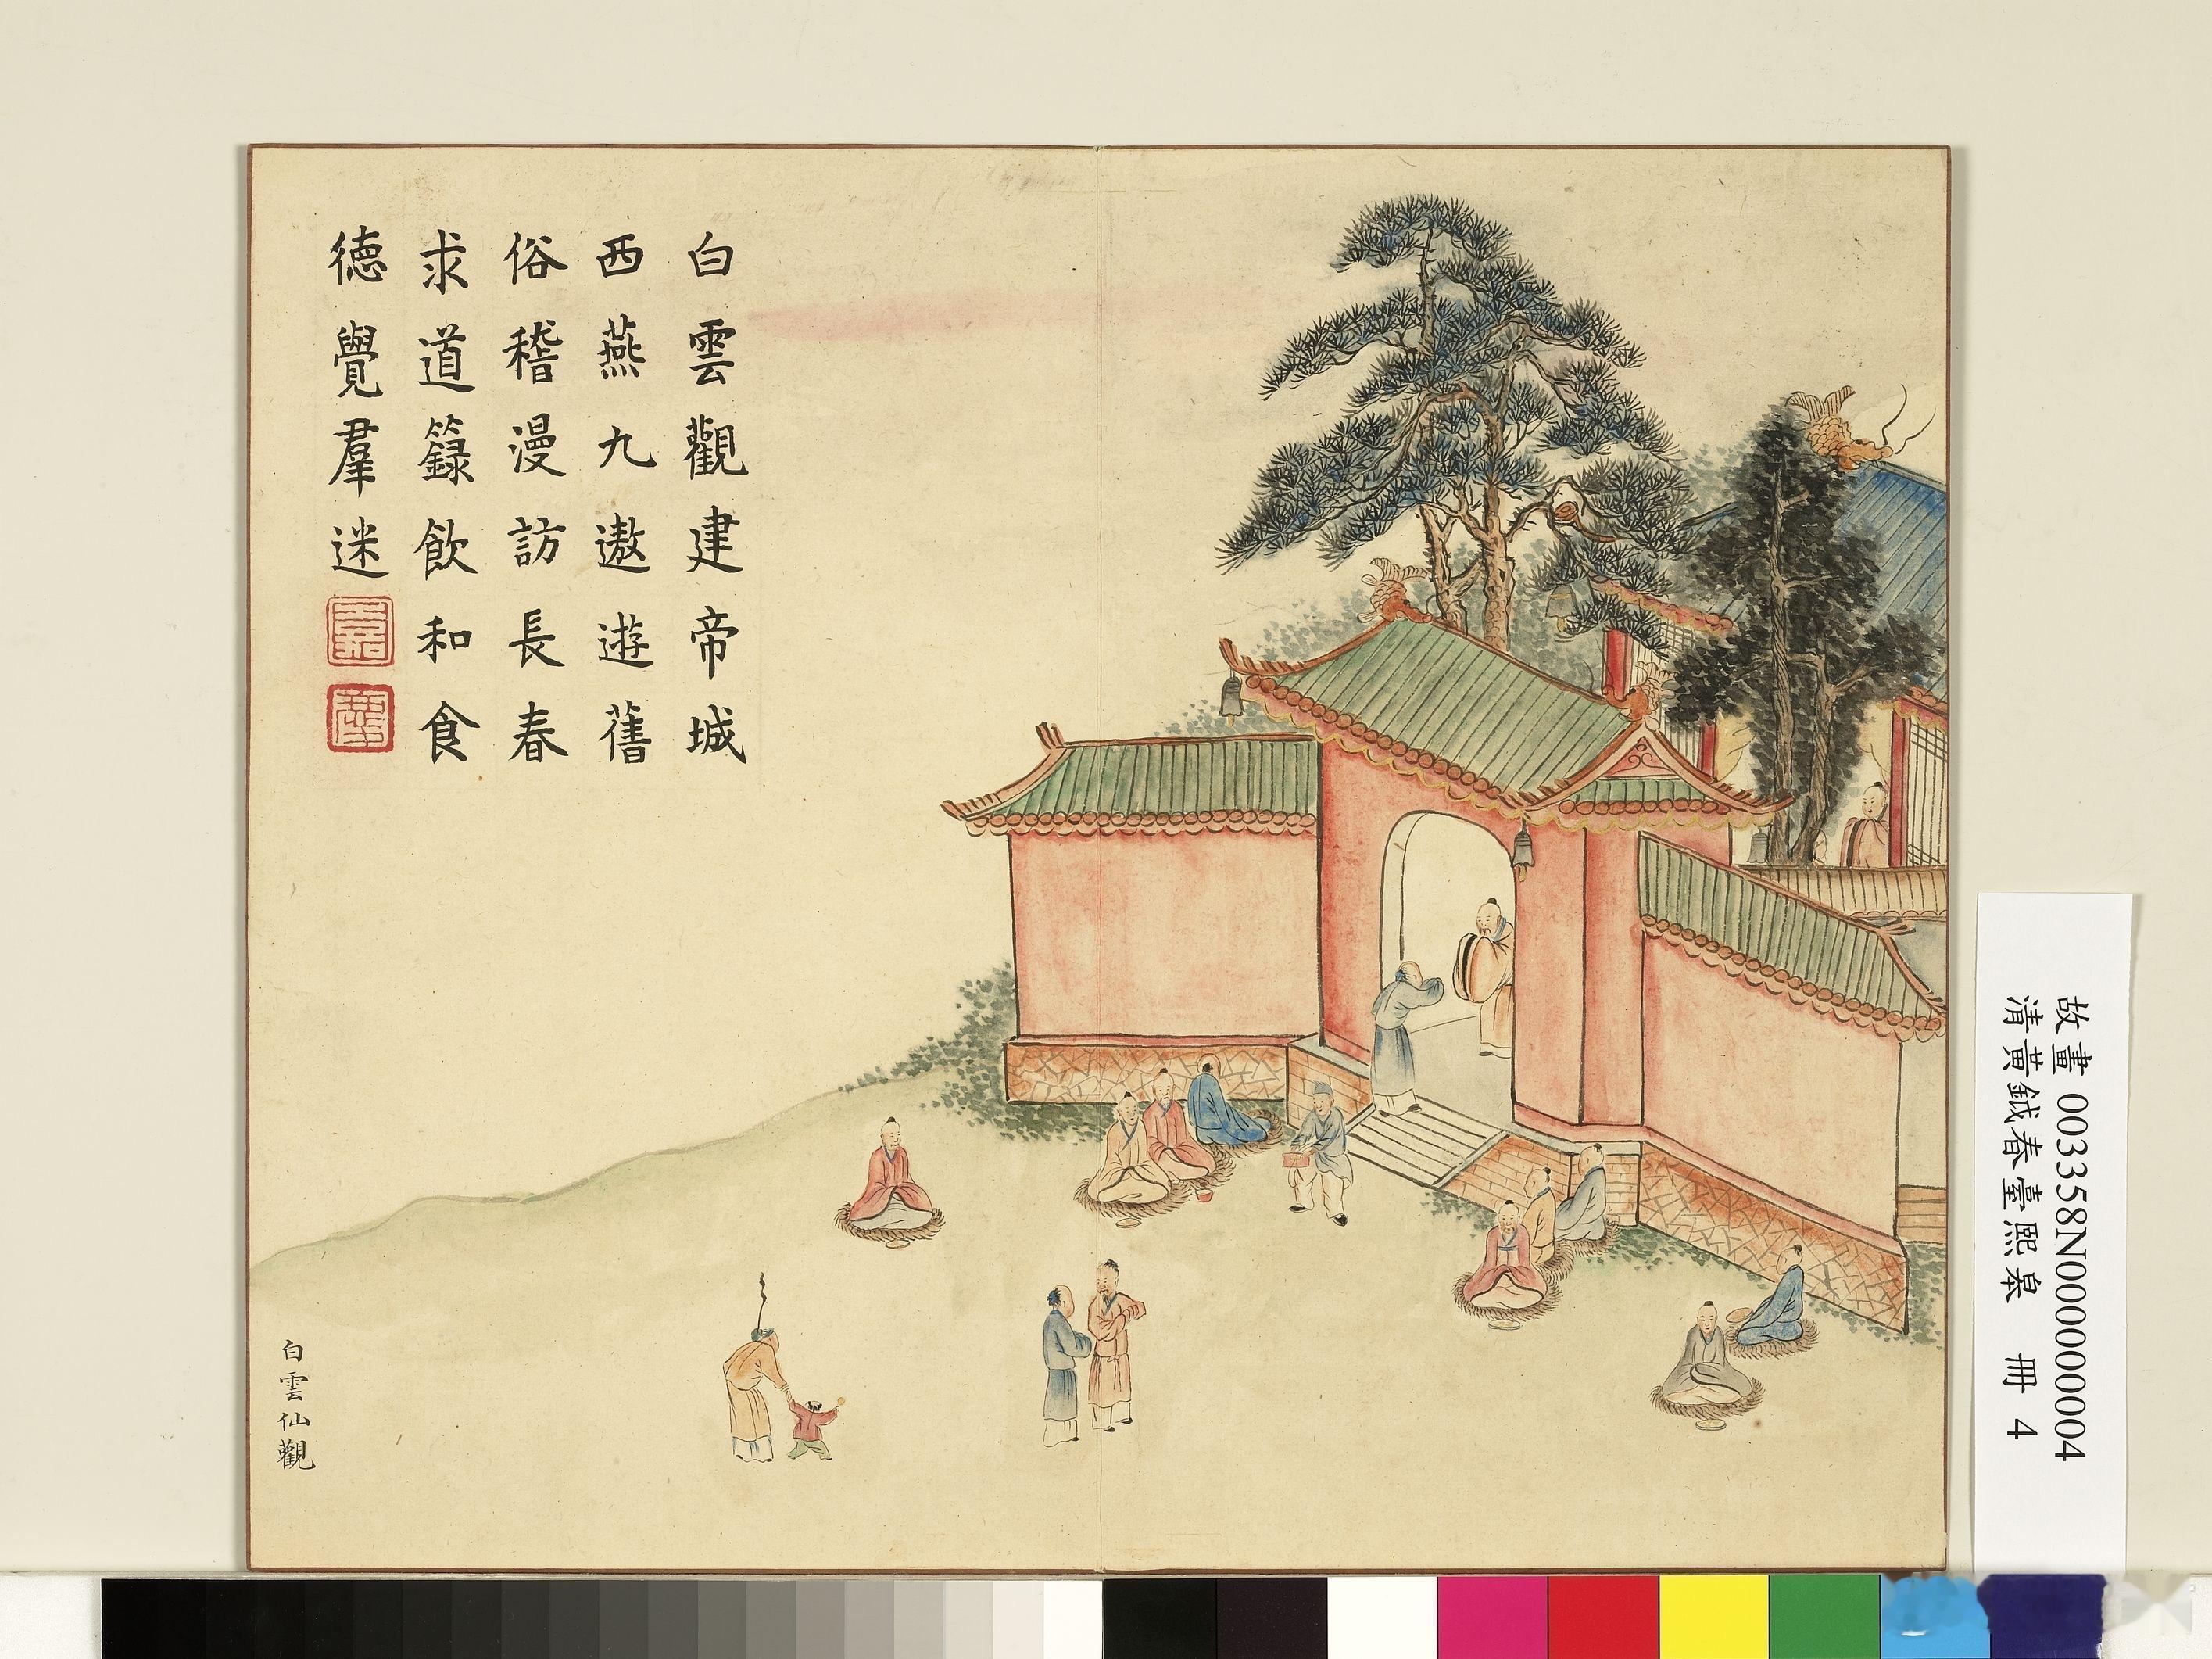 白雲觀建帝城
西燕九遨遊舊
俗稽漫訪長春
求道籙飲和食
德覺羣迷
白雲仙觀
故畫 003358N000000004
清黃鉞春臺熙皋 冊 4